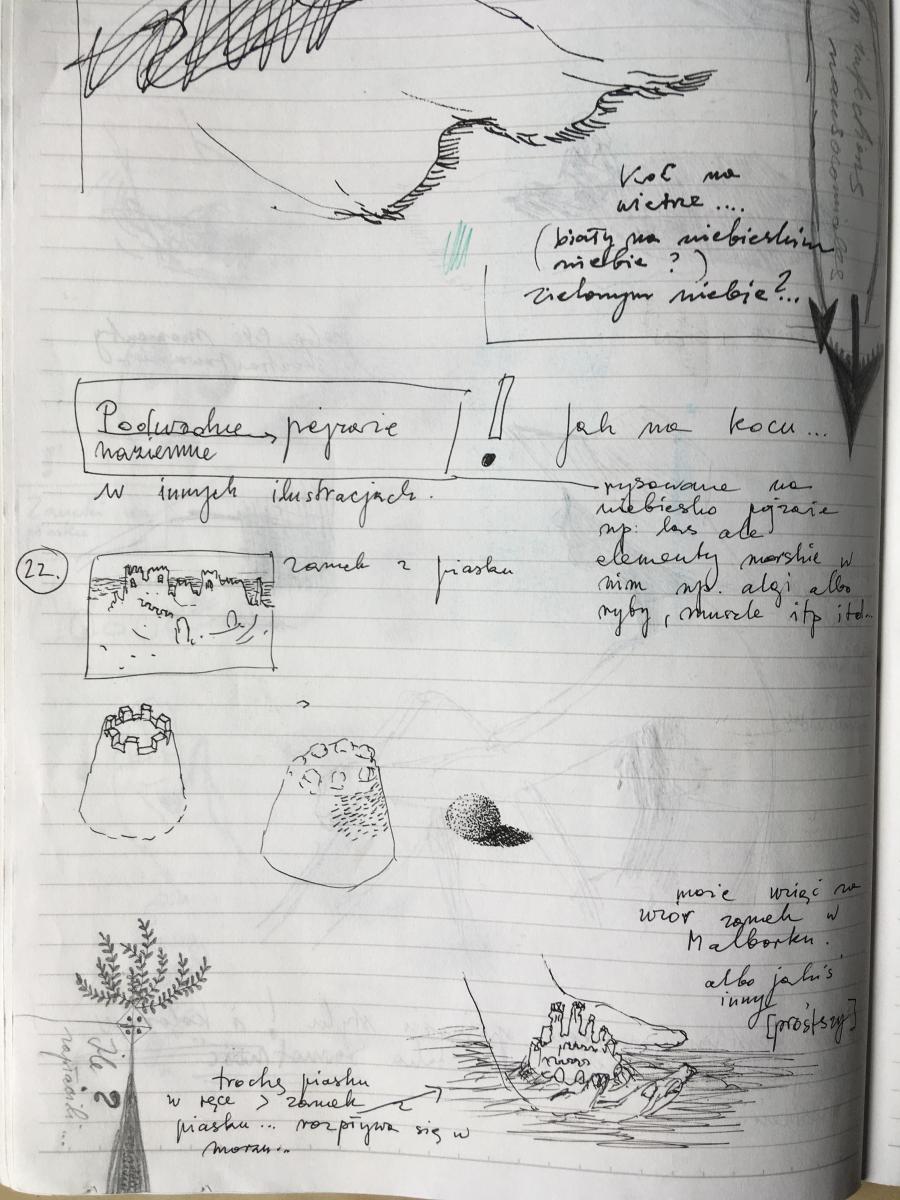 Koc na
wietrze....
(biały na niebieskim
niebie ?)
zielonym niebie?...
Podwodne → pejzaże !
naziemne
Jak na kocu...
w innych ilustracjach.
rysowane na
niebiesko pejzaże
np: las ale
elementy morskie w
nim np. algi albo
ryby, muszle itp itd...
22. zamek z piasku
może wziąć za
wzór zamek w
Malborku.
albo jakiś
inny
[prostszy]
Ile ?
trochę piasku
w ręce > zamek z
piasku... rozpływa się w
morzu...